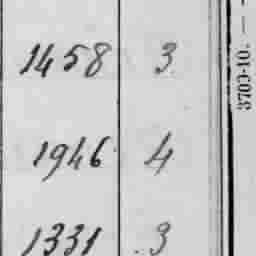 1458 3
1946 4
1331 3
3703-10. —